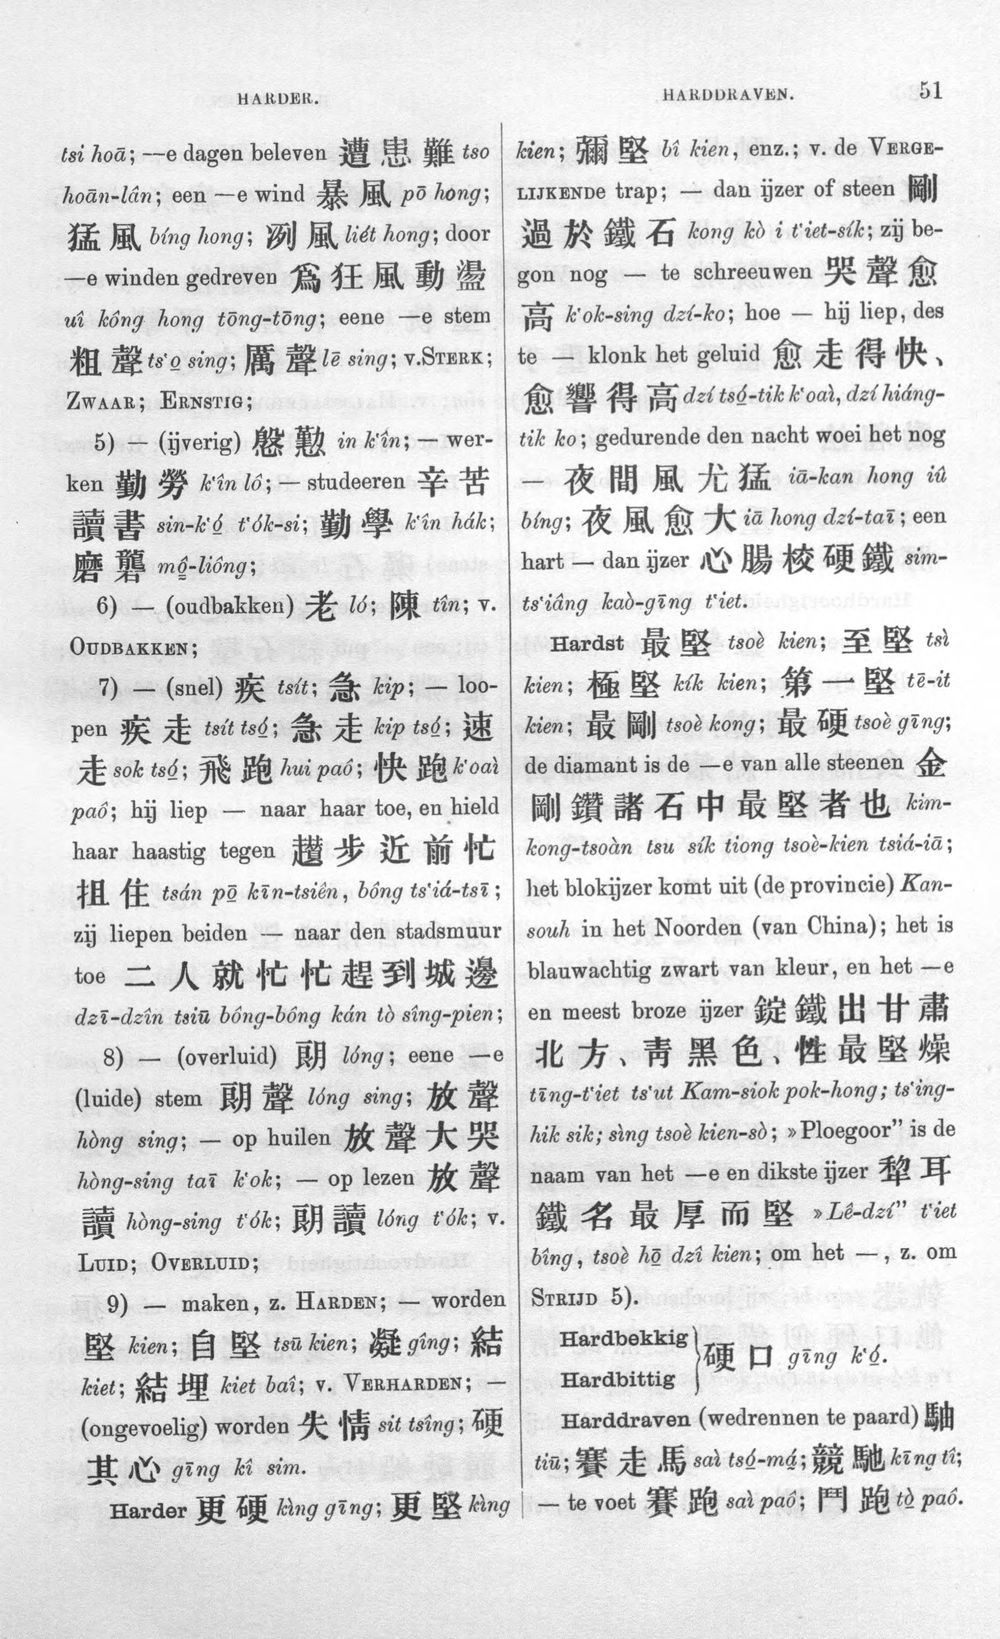 HARDER.
HARDDRAVEN.
51
tsi hoā; —e dagen beleven 遭患難 tso
hoān-lân; een —e wind 暴風 pō hong;
猛風 bíng hong; 冽風 liét hong; door
—e winden gedreven 爲狂風動盪
uî kông hong tōng-tōng; eene —e stem
粗聲 ts‘o sing; 厲聲 lē sing; v. STERK;
ZWAAR; ERNSTIG;
5) — (ijverig) 慇懃 in k‘în; — wer-
ken 勤勞 k‘în lô; — studeeren 辛苦
讀書 sin-k‘ó t‘ók-si; 勤學 k‘în hák;
磨礱 mô-liông;
6) — (oudbakken) 老 ló; 陳 tîn; v.
OUDBAKKEN;
7) — (snel) 疾 tsít; 急 kip; — loo-
pen 疾走 tsít tsó; 急走 kip tsó; 速
走 sok tsó; 飛跑 hui paô; 快跑 k‘oaì
paô; hij liep — naar haar toe, en hield
haar haastig tegen 趲步近前忙
抯住 tsán pō kīn-tsiên, bông ts‘iá-tsī;
zij liepen beiden — naar den stadsmuur
toe 二人就忙忙趕到城邊
dzī-dzîn tsiū bông-bông kán tò sîng-pien;
8) — (overluid) 朗 lóng; eene —e
(luide) stem 朗聲 lóng sing; 放聲
hòng sing; — op huilen 放聲大哭
hòng-sing taī k‘ok; — op lezen 放聲
讀 hòng-sing t‘ók; 朗讀 lóng t‘ók; v.
LUID; OVERLUID;
9) — maken, z. HARDEN; — worden
堅 kien; 自堅 tsū kien; 凝 gîng; 結
kiet; 結埋 kiet baî; v. VERHARDEN; —
(ongevoelig) worden 失情 sit tsîng; 硬
其心 gīng kî sim.
Harder 更硬 kìng gīng; 更堅 kìng
kien; 彌堅 bî kien, enz.; v. de VERGE-
LIJKENDe trap; — dan ijzer of steen 剛
過於鐵石 kong kò i t‘iet-sík; zij be-
gon nog — te schreeuwen 哭聲愈
高 k‘ok-sing dzí-ko; hoe — hij liep, des
te — klonk het geluid 愈走得快、
愈響得高 dzí tsó-tik k‘oaì, dzí hiáng-
tik ko; gedurende den nacht woei het nog
— 夜間風尤猛 iā-kan hong iû
bíng; 夜風愈大 iā hong dzí-taī; een
hart — dan ijzer 心腸校硬鐵 sim-
ts‘iâng kaò-gīng t‘iet.
Hardst 最堅 tsoè kien; 至堅 tsì
kien; 極堅 kík kien; 第一堅 tē-it
kien; 最剛 tsoè kong; 最硬 tsoè gīng;
de diamant is de —e van alle steenen 金
剛鑽諸石中最堅者也 kim-
kong-tsoàn tsu sík tiong tsoè-kien tsiá-iā;
het blokijzer komt uit (de provincie) Kan-
souh in het Noorden (van China); het is
blauwachtig zwart van kleur, en het —e
en meest broze ijzer 錠鐵出甘肅
北方、靑黑色、性最堅燥
tīng-t‘iet ts‘ut Kam-siok pok-hong; ts‘ing-
hik sik; sìng tsoè kien-sò; »Ploegoor” is de
naam van het —e en dikste ijzer 犂耳
鐵名最厚而堅 »Lê-dzí” t‘iet
bîng, tsoè hō dzî kien; om het —, z. om
STRIJD 5).
Hardbekkig
Hardbittig } 硬口 gīng k‘ó.
Harddraven (wedrennen te paard) 䮉
tiū; 賽走馬 saì tsó-má; 競馳 kīng tî;
— te voet 賽跑 saì paô; 鬥跑 tò paô.